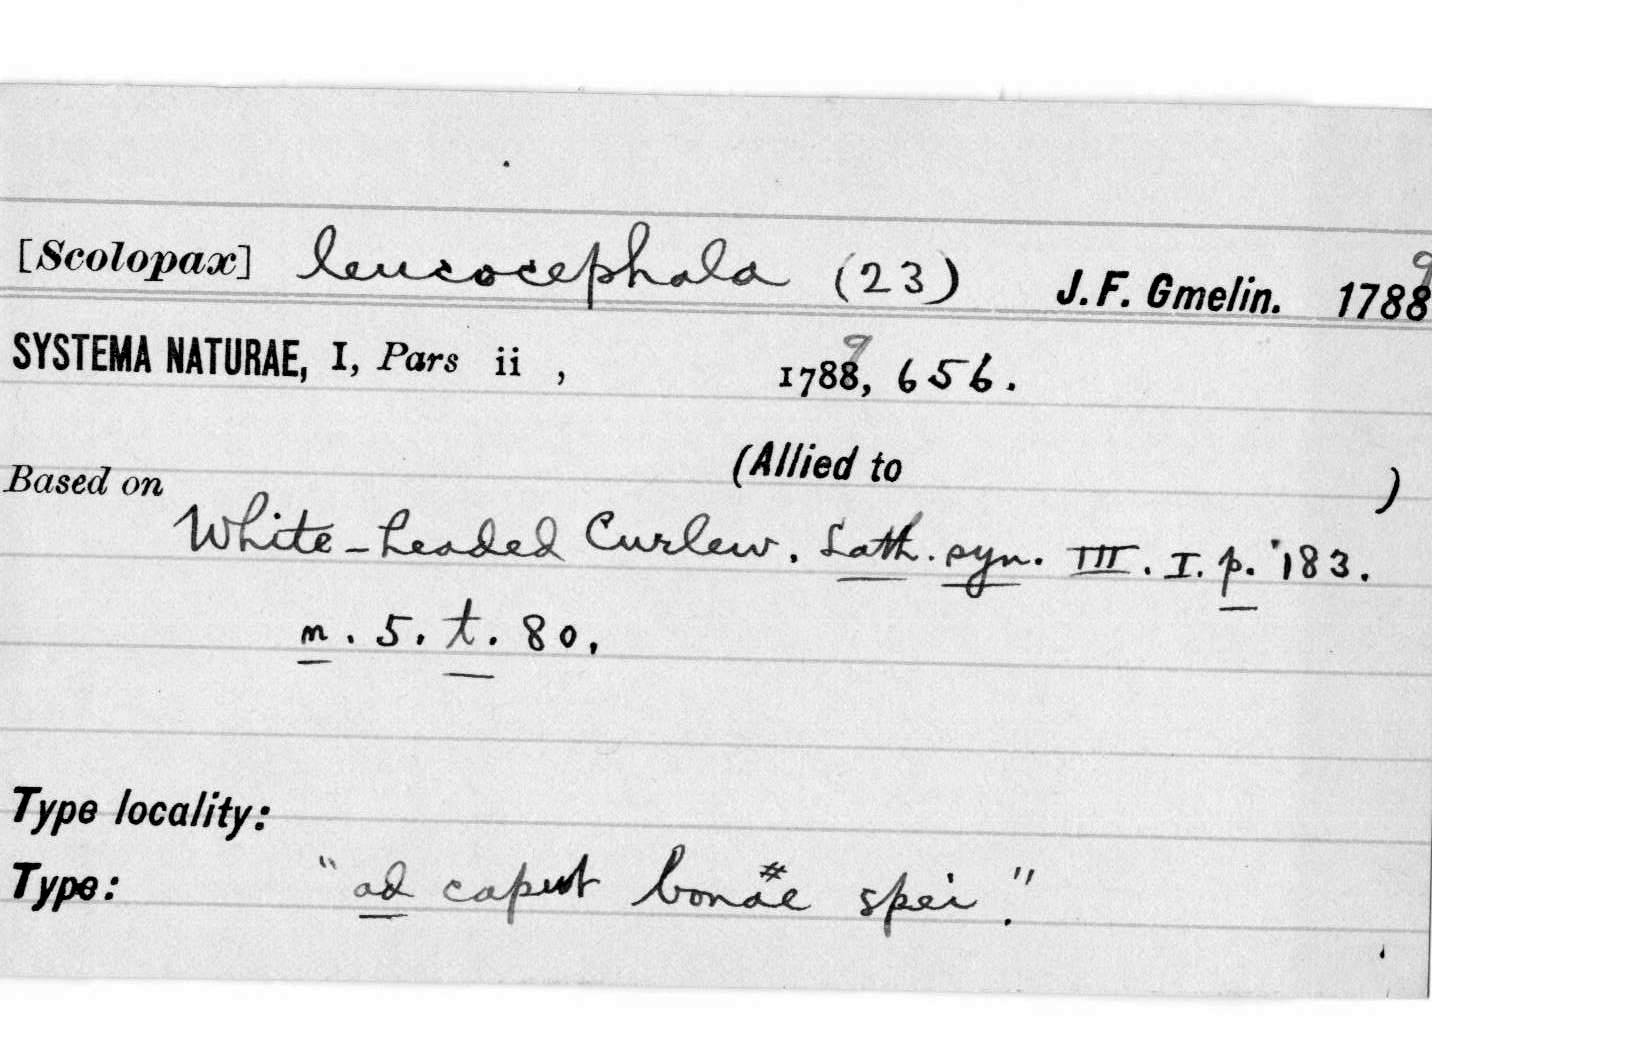 [Scolopax] leucocephala (23) J.F. Gmelin. 17889
SYSTEMA NATURAE, I, Pars ii , 17889, 656.
(Allied to )
Based on
White-headed Curlew. Lath. syn. III. I. p. 183.
n. 5. t. 80.
Type locality:
Type: "ad caput bonae # spei."